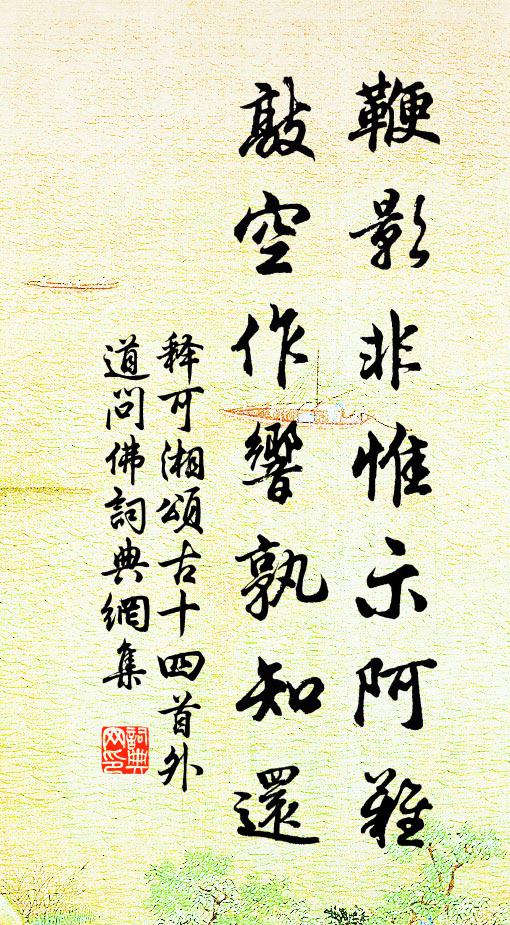 鞭影非惟示阿難
敲空作響孰知還
释可湘頌古十四首外
道问佛詞典網集
詞典网印